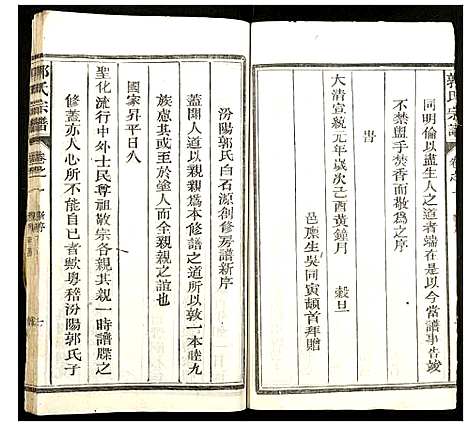 郭氏宗譜
卷之一
同明倫以盡生人之道者端在是以今當譜事告竣
不禁盥手焚香而敬為之序
旹
大清宣統元年歲次己酉黃鐘月 穀旦
邑廩生吳同寅頓首拜贈
汾陽郭氏白石源創修房譜新序
蓋聞人道以親親為本修譜之道所以敦一本睦九
族慮其或至於塗人而全親親之誼也
國家昇平日久
聖化流行中外士民尊祖敬宗各親其親一時譜牒之
修蓋亦人心所不能自已者歟粵稽汾陽郭氏子
郭氏宗譜
卷之一
新序